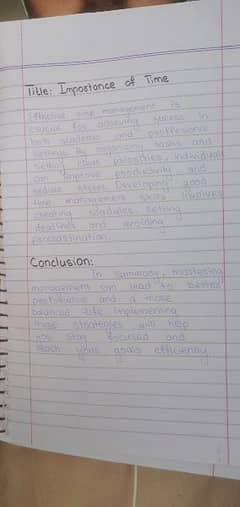 Title: Importance of Time
Effective time management is
crucial for achieving success in
both academic and professional
settings By organizing tasks and
setting clear priorities, individuals
can improve productivity and
reduce stress. Developing good
time management skills involves
creating schedules, setting
deadlines and avoiding
procrastination.
Conclusion:
In summary, mastering
management can lead to better
performance and a more
balanced life implementing
these strategies will help
you stay focused and
reach your goals efficiently